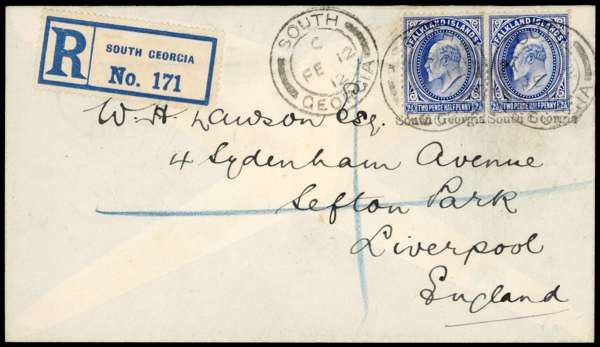 R
SOUTH GEORGIA
No. 171
SOUTH
C
FE 12
12
GEORGIA
FALKLAND ISLANDS
2½
TWO PENCE HALF PENNY
2½
FALKLAND ISLANDS
2½
TWO PENCE HALF PENNY
2½
South Georgia South Georgia
W. H. Lawson Esq.
4 Sydenham Avenue
Sefton Park
Liverpool
England